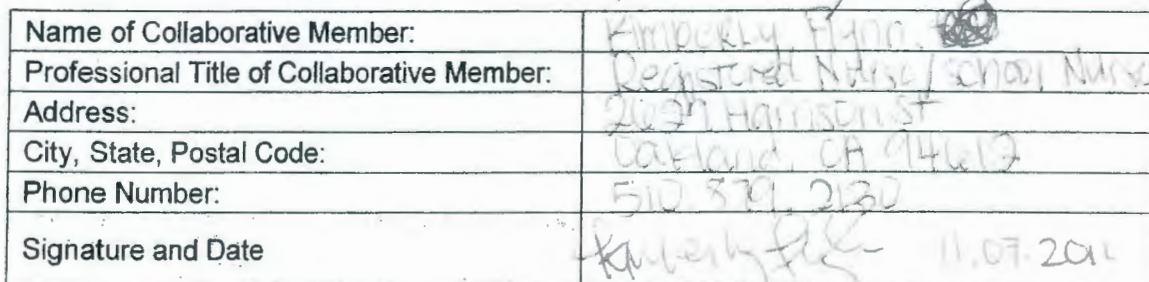 Name of Collaborative Member: Kimberly Flynn
Professional Title of Collaborative Member: Registered Nurse/School Nurse
Address: Harrison St
City, State, Postal Code: Oakland, CA 94612
Phone Number: 510.879.2130
Signature and Date 11.07.